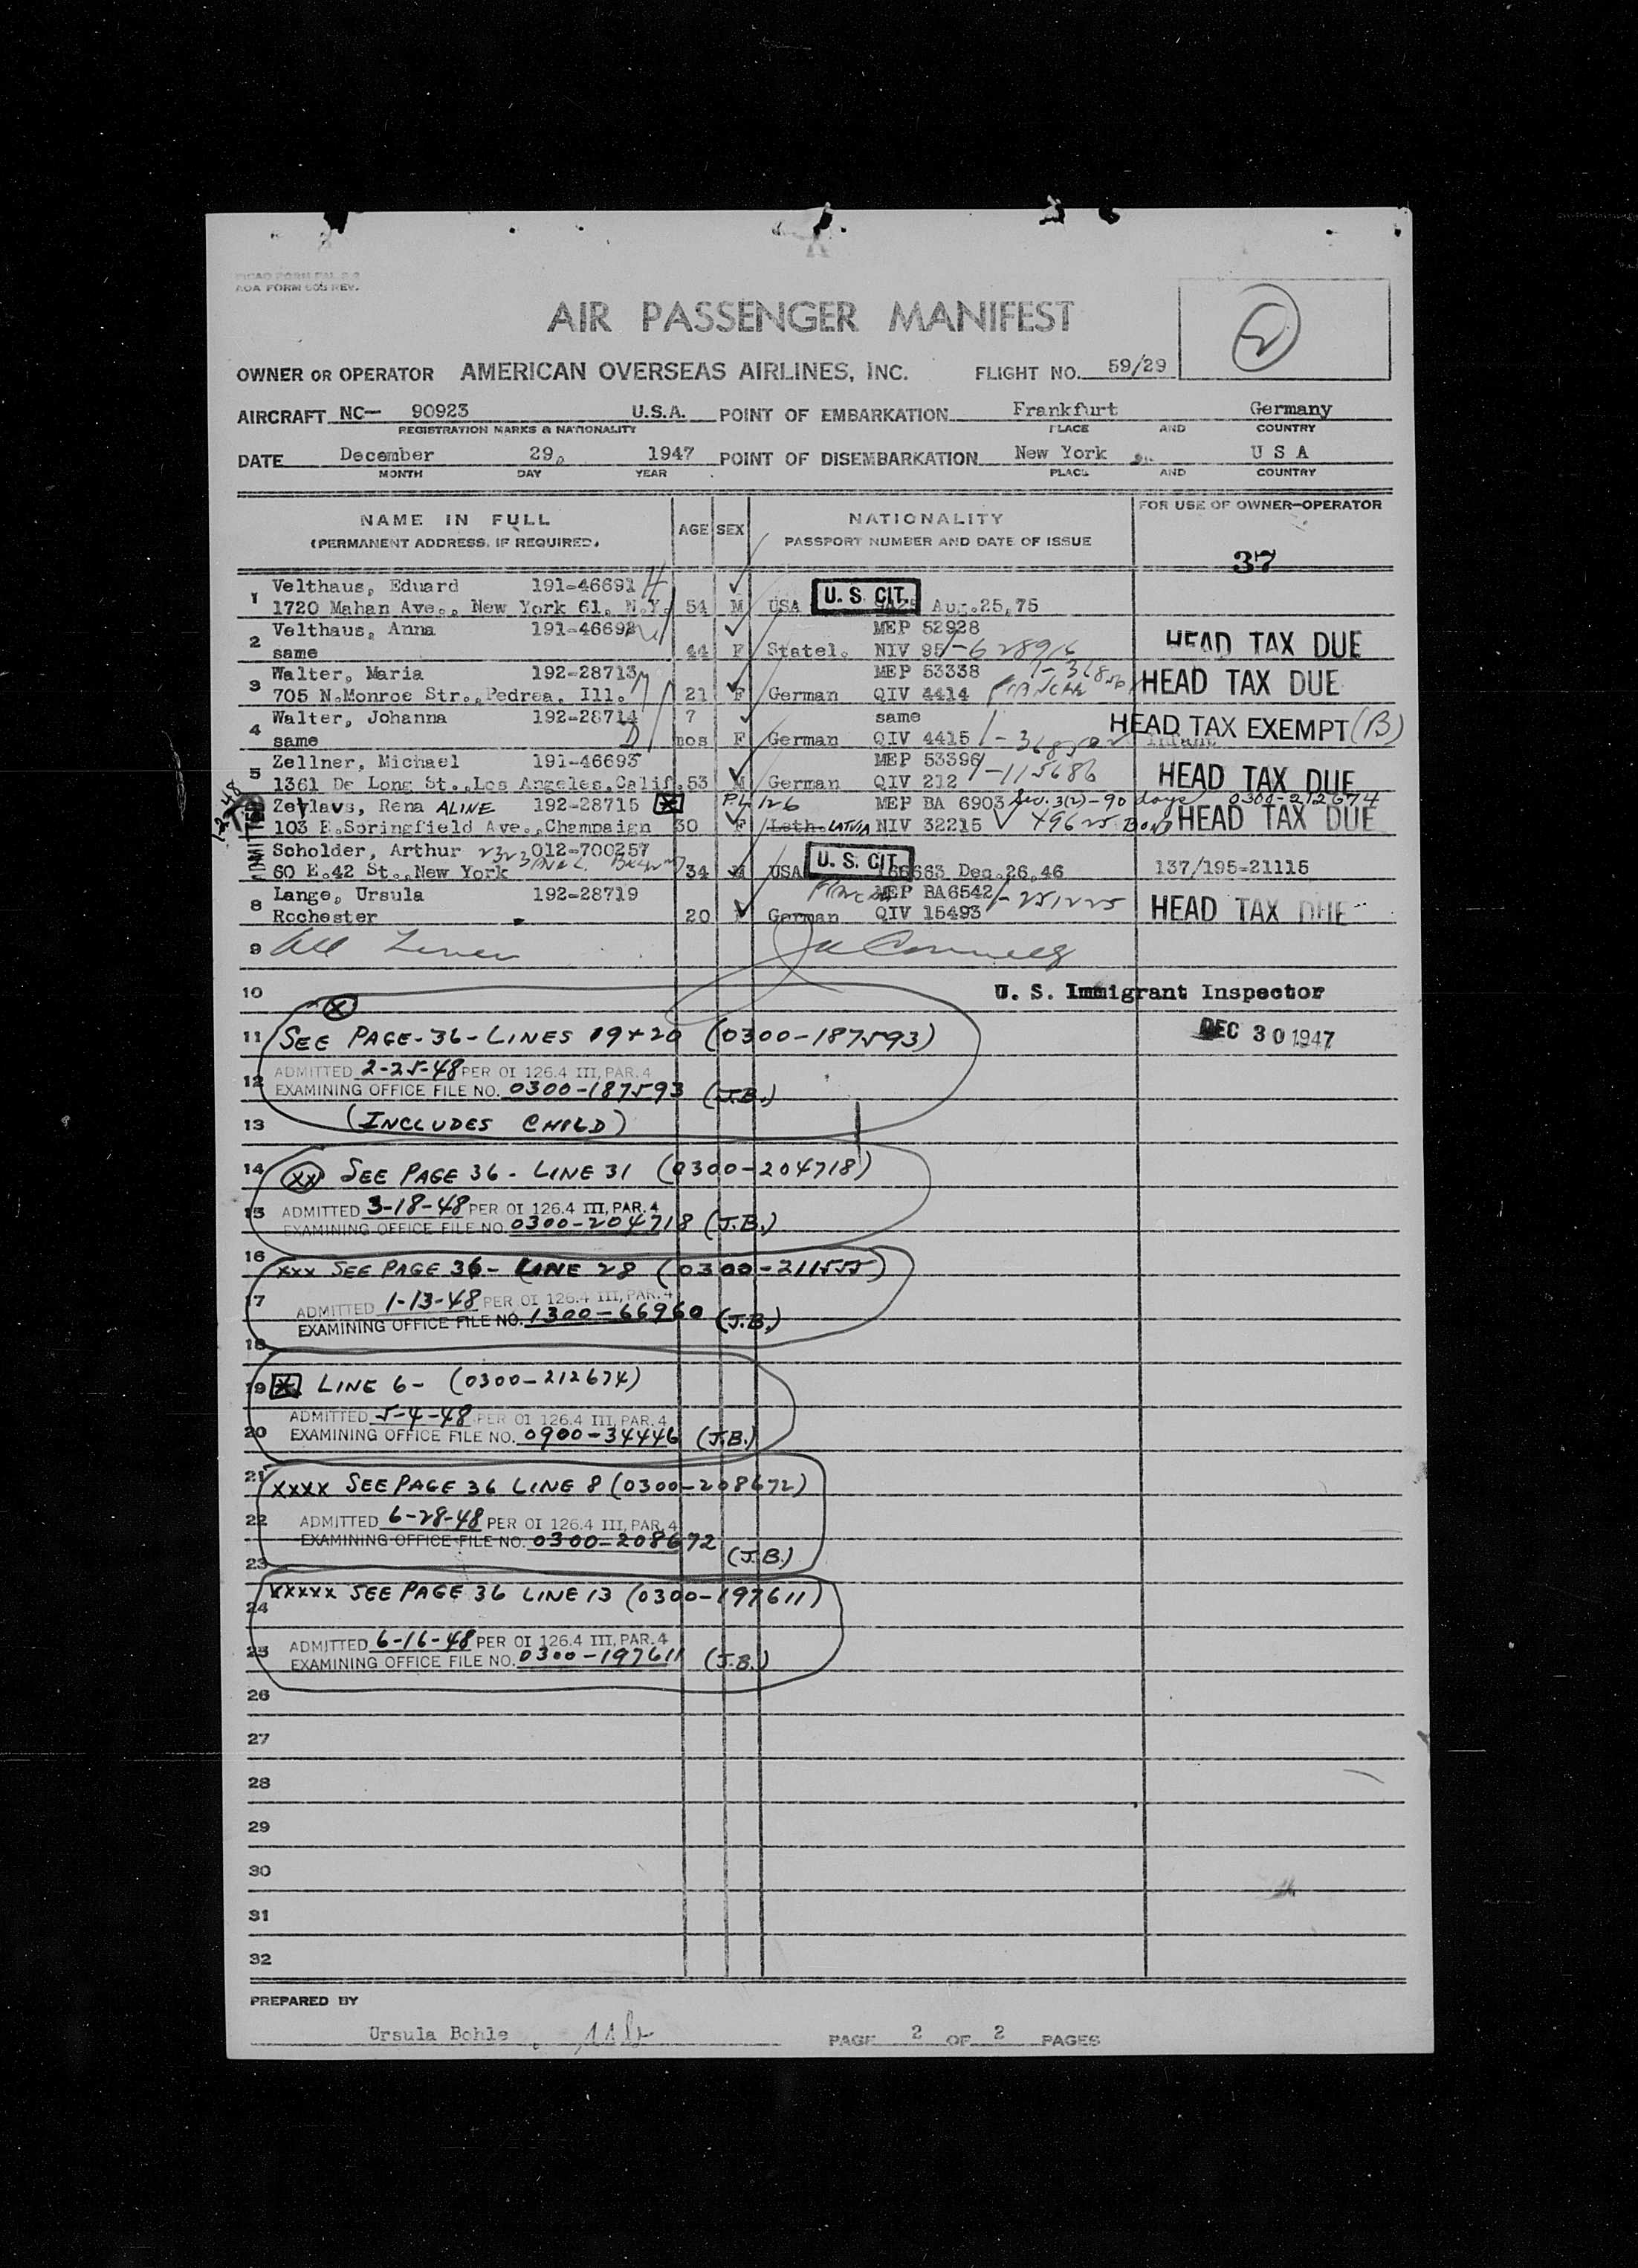 AOA FORM 605 REV.
AIR PASSENGER MANIFEST
2
OWNER OR OPERATOR AMERICAN OVERSEAS AIRLINES, INC. FLIGHT NO. 59/29
AIRCRAFT NC— 90923 U.S.A. POINT OF EMBARKATION Frankfurt Germany
REGISTRATION MARKS & NATIONALITY PLACE AND COUNTRY
DATE December 29, 1947 POINT OF DISEMBARKATION New York U S A
MONTH DAY YEAR PLACE AND COUNTRY
NAME IN FULL AGE SEX NATIONALITY FOR USE OF OWNER—OPERATOR
(PERMANENT ADDRESS, IF REQUIRED) PASSPORT NUMBER AND DATE OF ISSUE
37
1 Velthaus, Eduard 191-46691
1720 Mahan Ave., New York 61, N.Y. 54 M USA U. S. CIT. Aug.25,75
2 Velthaus, Anna 191-46692 MEP 52928
same 44 F Statel. NIV 95 HEAD TAX DUE
3 Walter, Maria 192-28713 MEP 53338
705 N.Monroe Str., Pedrea, Ill. 21 F German QIV 4414 HEAD TAX DUE
4 Walter, Johanna 192-28714 7 same HEAD TAX EXEMPT (B)
same mos F German QIV 4415 Infant
5 Zellner, Michael 191-46693 MEP 53396
1361 De Long St., Los Angeles, Calif. 53 M German QIV 212 1-115686 HEAD TAX DUE
Rena ALINE 192-28715 P.L. 126 MEP BA 6903 Sec. 3(2)-90 days 0300-212674
103 E.Springfield Ave., Champaign 30 F Leth. LATVIA NIV 32215 49625 BOND HEAD TAX DUE
ADMITTED
Scholder, Arthur 012-700257
60 E.42 St., New York 34 M USA U. S. CIT. Dec.26,46 137/195-21115
8 Lange, Ursula 192-28719 MEP BA6542
Rochester 20 F German QIV 15493 HEAD TAX DUE
9
10 U. S. Immigrant Inspector
X
11 SEE PAGE-36-LINES 19+20 (0300-187593) DEC 30 1947
ADMITTED 2-25-48 PER OI 126.4 III, PAR. 4
12 EXAMINING OFFICE FILE NO. 0300-187593 (J.B.)
13 (INCLUDES CHILD)
14 XX SEE PAGE 36 - LINE 31 (0300-204718)
15 ADMITTED 3-18-48 PER OI 126.4 III, PAR. 4
EXAMINING OFFICE FILE NO. 0300-204718 (J.B.)
16 XXX SEE PAGE 36- LINE 28 (0300-211555)
17 ADMITTED 1-13-48 PER OI 126.4 III, PAR. 4
EXAMINING OFFICE FILE NO. 1300-66960 (J.B.)
18
19 X LINE 6- (0300-212674)
ADMITTED 5-4-48 PER OI 126.4 III, PAR. 4
20 EXAMINING OFFICE FILE NO. 0900-34446 (J.B.)
21 XXXX SEE PAGE 36 LINE 8 (0300-208672)
22 ADMITTED 6-28-48 PER OI 126.4 III, PAR. 4
EXAMINING OFFICE FILE NO. 0300-208672
23 (J.B.)
XXXXX SEE PAGE 36 LINE 13 (0300-197611)
24
25 ADMITTED 6-16-48 PER OI 126.4 III, PAR. 4
EXAMINING OFFICE FILE NO. 0300-197611 (J.B.)
26
27
28
29
30
31
32
PREPARED BY
Ursula Bohle PAGE 2 OF 2 PAGES